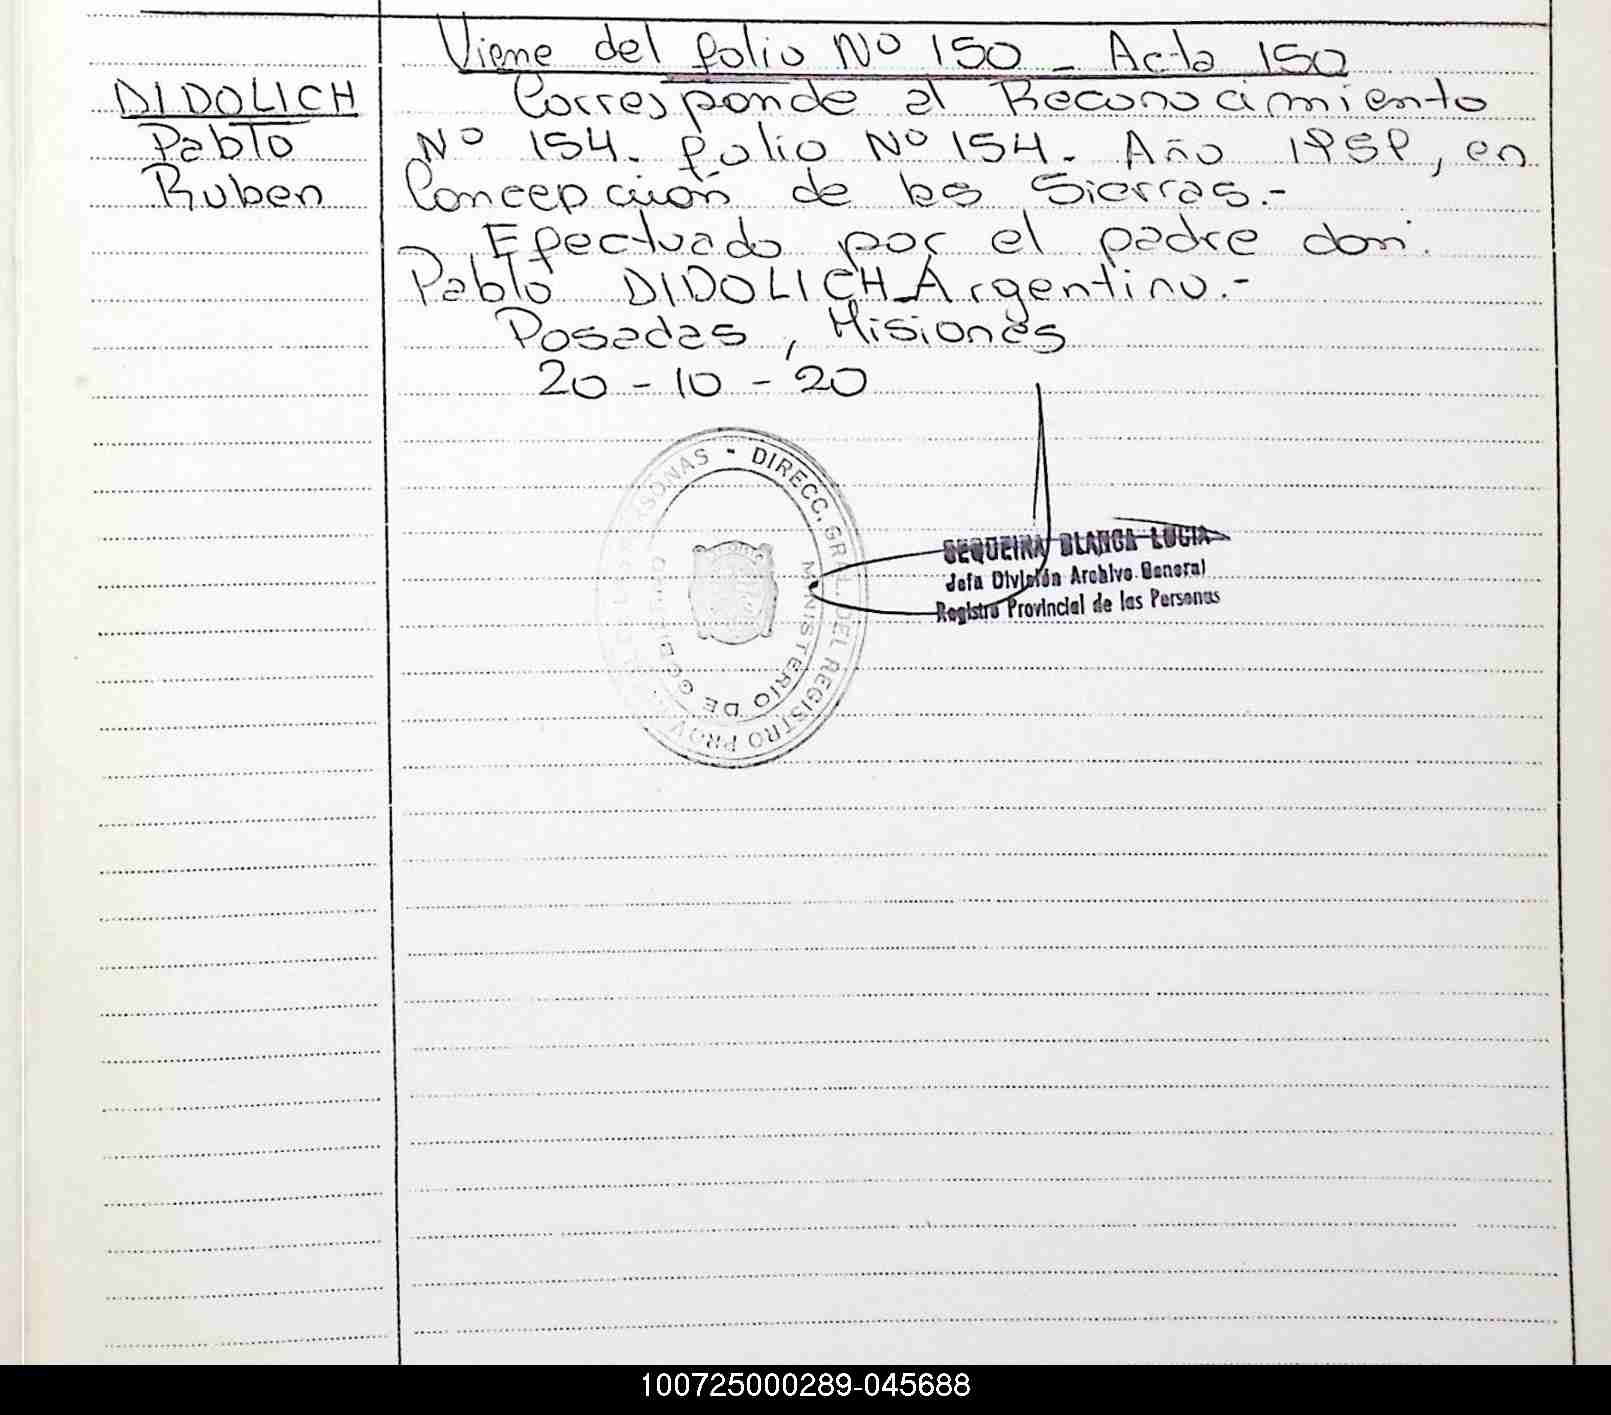 Viene del folio Nº 150 - Acta 150
DIDOLICH
Pablo
Ruben
Corresponde al Reconocimiento
Nº 154. folio Nº 154. Año 1959, en
Concepción de las Sierras.-
Efectuado por el padre don:
Pablo DIDOLICH Argentino.-
Posadas, Misiones
20-10-20
DIRECC. GRAL. DEL REGISTRO PROV. DE LAS PERSONAS
MINISTERIO DE GOBIERNO
SEQUEIRA BLANCA LUCIA
Jefa División Archivo General
Registro Provincial de las Personas
100725000289-045688